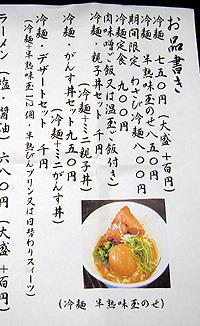 お品書き
冷麺 七五〇円 (大盛+百円)
冷麺 半熟味玉のせ八五〇円
期間限定 わさび冷麺 八〇〇円
冷麺定食 九〇〇円
肉味噌ご飯又は温玉ご飯付き)
冷麺・親子丼セット 千円
(冷麺+ミニ親子丼)
冷麺・がんす丼セット 九五〇円
(冷麺+ミニがんす丼)
冷麺・デザートセット 千円
(冷麺+半熟味玉1/2個、半熟びんプリン又は日替わりスイーツ)
ラーメン (塩 醤油) 六八〇円 (大盛+百円)
(冷麺 半熟味玉のせ)